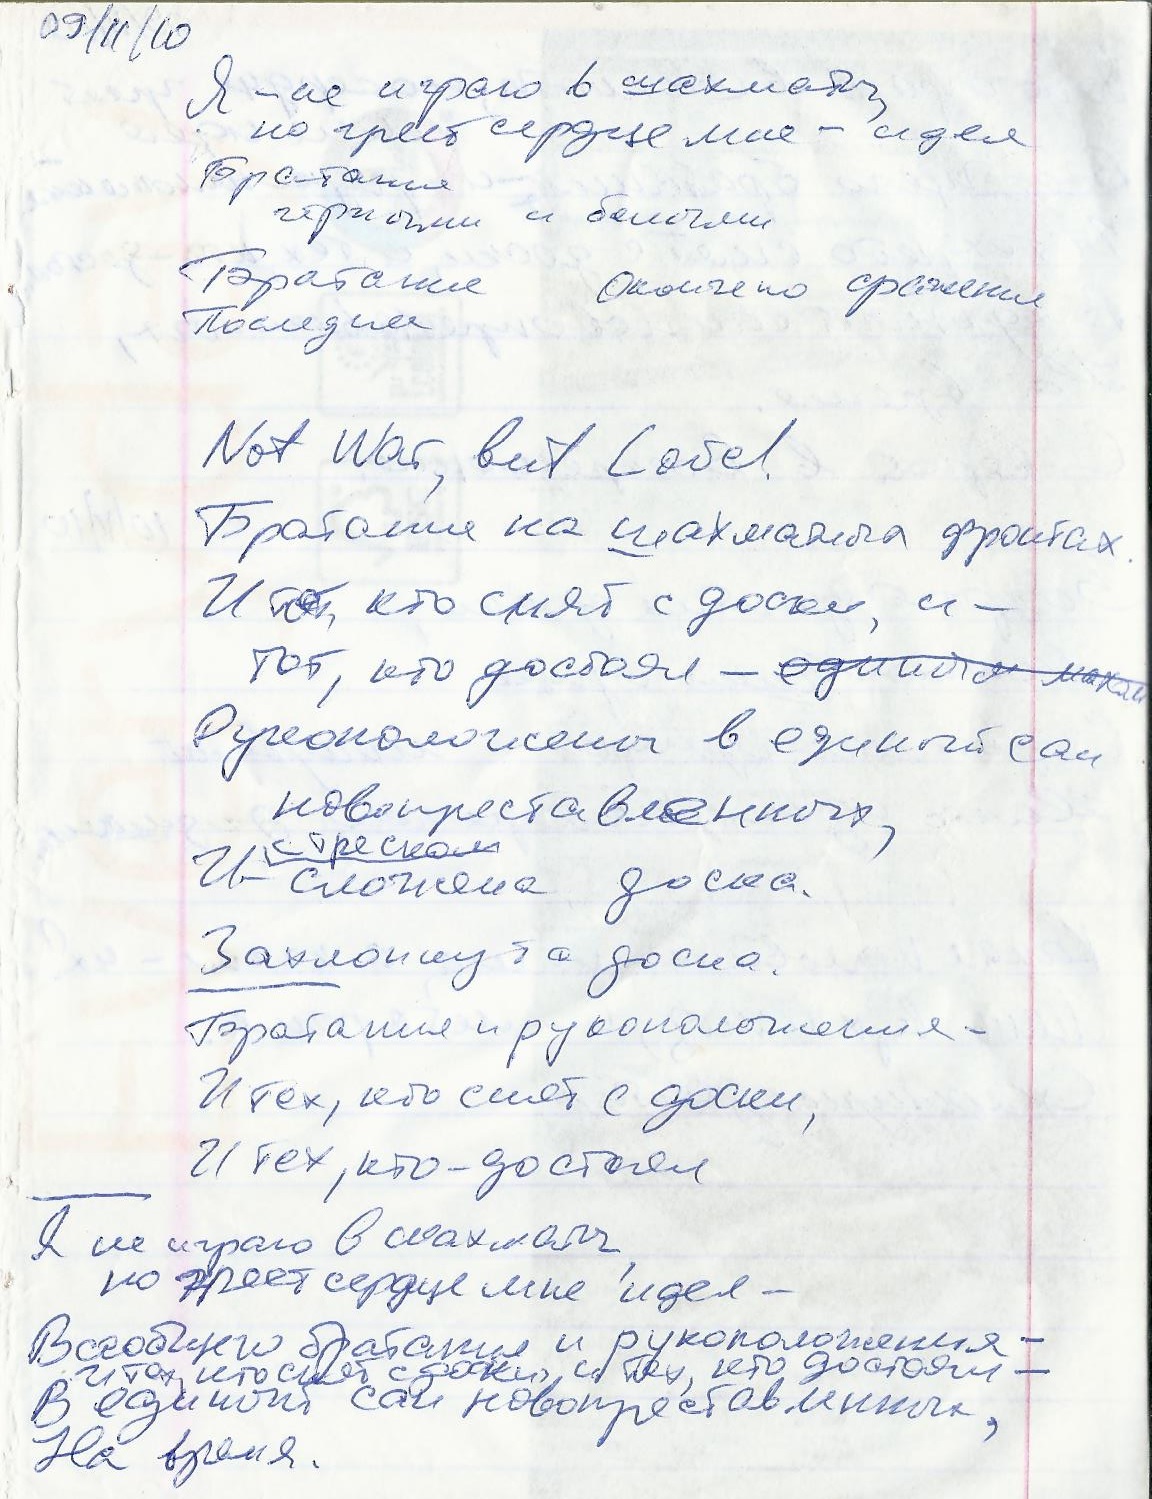 09/11/10
Я – не играю в шахматы,
но греет сердце мне – идея
Братания
чёрными и белыми
Братание Окончено сражение
Последние
Not War, but Love!
Братание на шахматных фронтах.
И тот, кто снят с доски, и –
тот, кто достоял – единым махом
Рукоположены в единый сан
новопреставленных,
с треском
И – сложена доска.
Захлопнута доска.
Братания и рукоположения –
И тех, кто снят с доски,
И тех, кто – достоял
Я не играю в шахматы,
но греет сердце мне идея –
Всеобщего братания и рукоположения –
и тех, кто снят с доски, и тех, кто достоял –
В единый сан новопреставленных,
На время.